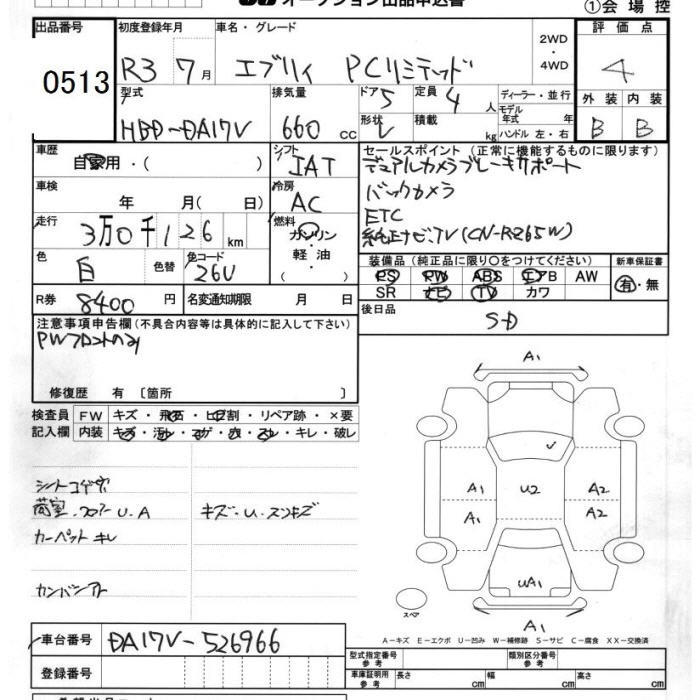 オークション出品申込書
①会場控
出品番号 初度登録年月 車名・グレード 2WD・4WD 評価点
0513 R3 7月 エブリィ PCリミテッド 4
型式 排気量 ドア 定員 ディーラー・並行 外装 内装
HBD-DA17V 660cc 5 4人 モデル年式 年 B B
形状 V 積載 kg ハンドル 左・右
車歴 自家用・( ) シフト IAT セールスポイント (正常に機能するものに限ります)
デュアルカメラブレーキサポート
車検 年 月( 日) 冷房 AC バックカメラ
ETC
走行 3万0千126km 燃料 ガソリン・軽油・( ) 純正ナビ.TV(CN-RZ65W)
色 白 色替 色コード 26U 装備品 (純正品に限り○をつけてください) 新車保証書
PS PW ABS エアB AW 有・無
SR ナビ TV カワ
R券 8400円 名変通知期限 月 日 後日品 S-D
注意事項申告欄(不具合内容等は具体的に記入して下さい)
PWフロントのみ
修復歴 有 〔箇所 〕
検査員 FW キズ・飛石・ヒビ割・リペア跡・×要
記入欄 内装 キズ・汚れ・コゲ・穴・スレ・キレ・破レ
荷室.フロアー U.A キズ・U・スリキズ
カーペット キレ
A1
A1 U2 A2
A1 A2
UA1
スペア A1
A-キズ E-エクボ U-凹み W-補修跡 S-サビ C-腐食 XX-交換済
車台番号 DA17V-526966
型式指定番号 参考 類別区分番号 参考
登録番号 車庫証明用 参考 長さ cm 幅 cm 高さ cm